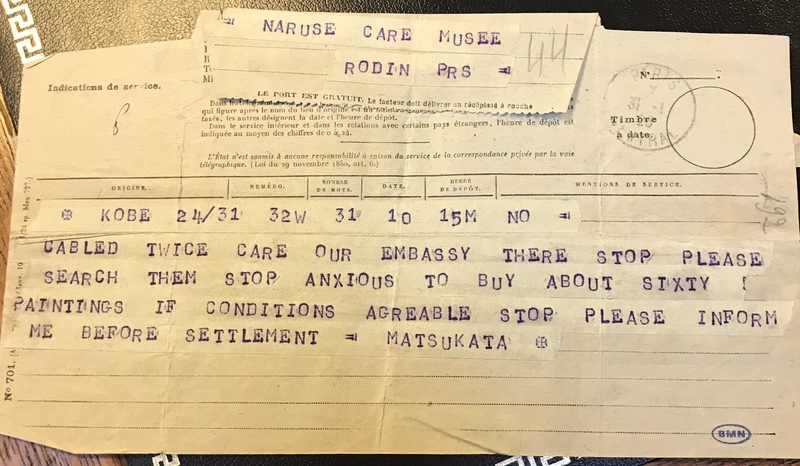 = NARUSE CARE MUSEE
RODIN PRS =
44
Indications de service.
LE PORT EST GRATUIT. Le facteur doit délivrer un récépissé à souche
qui figure après le nom du lieu d'origine est un
taxés, les autres désignent la date et l'heure de dépôt.
Dans le service intérieur et dans les relations avec certains pays étrangers, l'heure de dépôt est
indiquée au moyen des chiffres de 0 à 24.
L'État n'est soumis à aucune responsabilité à raison du service de la correspondance privée par la voie
télégraphique. (Loi du 29 novembre 1850, art. 6.)
N°
PARIS
31 -1
CENTRAL
Timbre
à date.
ORIGINE. NUMÉRO. NOMBRE DE MOTS. DATE. HEURE DE DÉPÔT. MENTIONS DE SERVICE.
KOBE 24/31 32W 31 10 15M NO =
CABLED TWICE CARE OUR EMBASSY THERE STOP PLEASE
SEARCH THEM STOP ANXIOUS TO BUY ABOUT SIXTY
PAINTINGS IF CONDITIONS AGREABLE STOP PLEASE INFORM
ME BEFORE SETTLEMENT = MATSUKATA
N° 701.
BMN